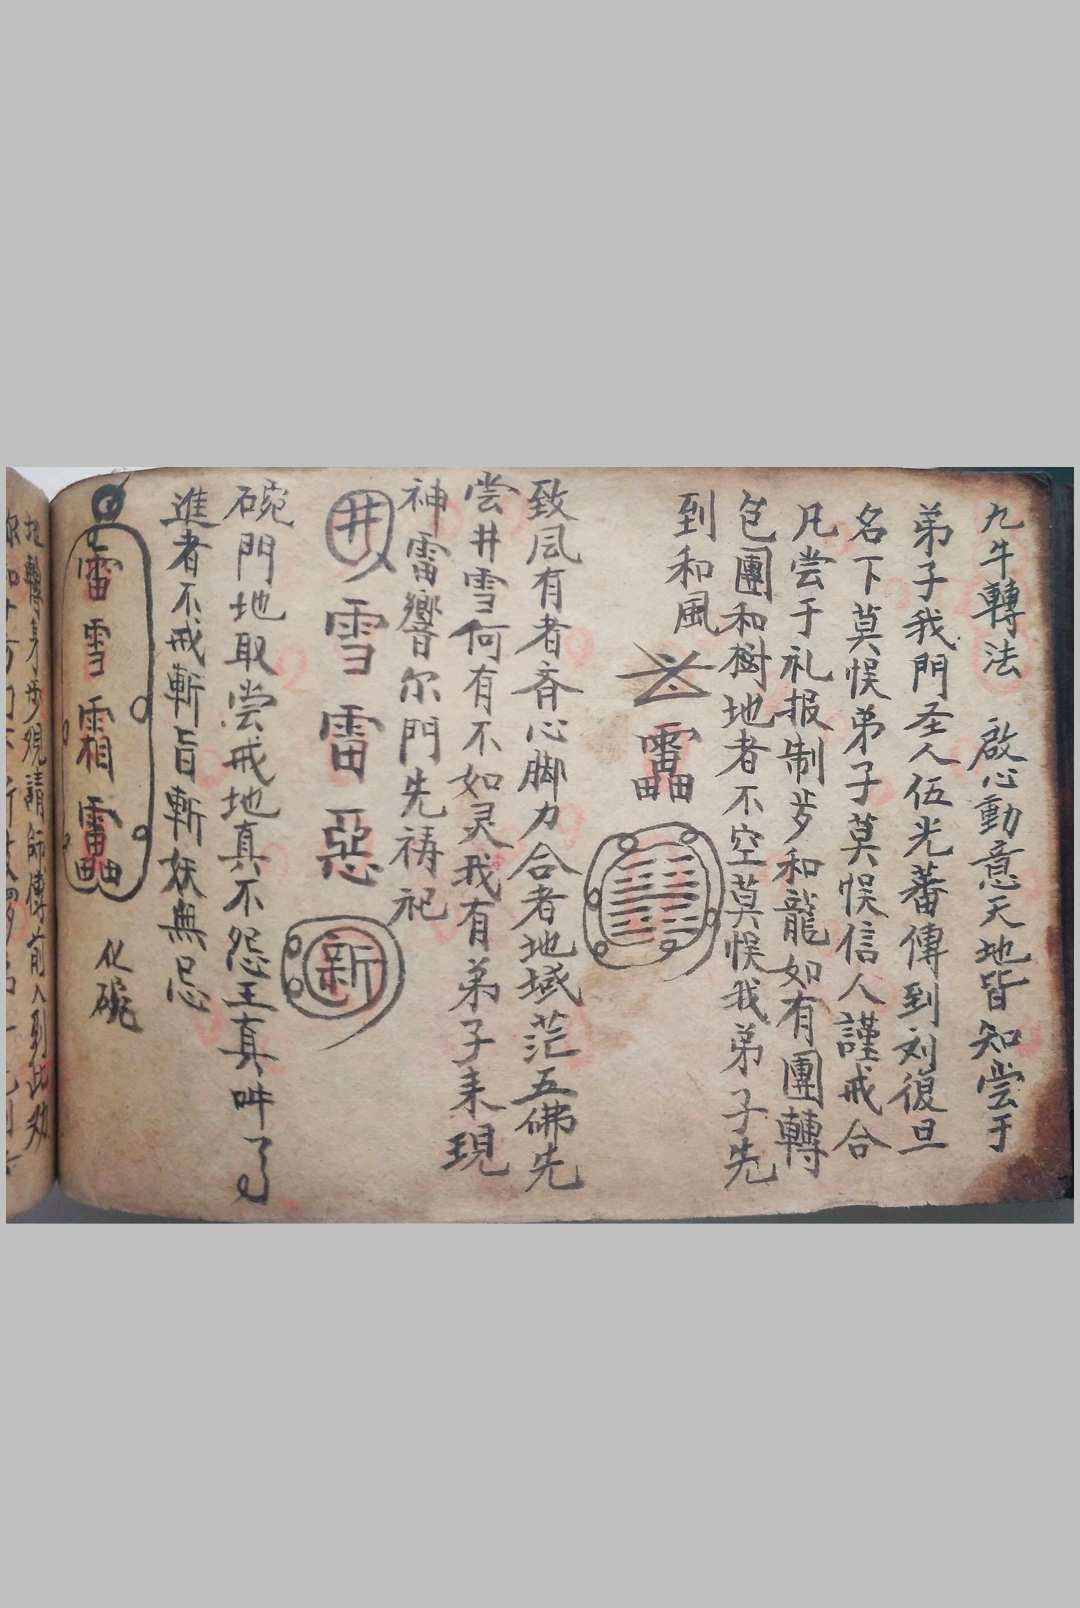 九牛轉法 啟心動意天地皆知尝于
弟子我門圣人伍光蕃傳到刘復旦
名下莫悮弟子莫悮信人謹戒合
凡尝于礼报制岁和龍如有團轉
包團和樹地者不空莫悮我弟子先
到和風
致风有者斉心脚力合者地域茫五佛先
尝井雪何有不如灵我有弟子耒現
神雷響尔門先祷祀
井 雪雷惡 新
碗門地取尝戒地真不怨王真叫了
進者不戒斬旨斬妖無忌
雷雪霜靁 化碗
轉身步現請師傅前入到此